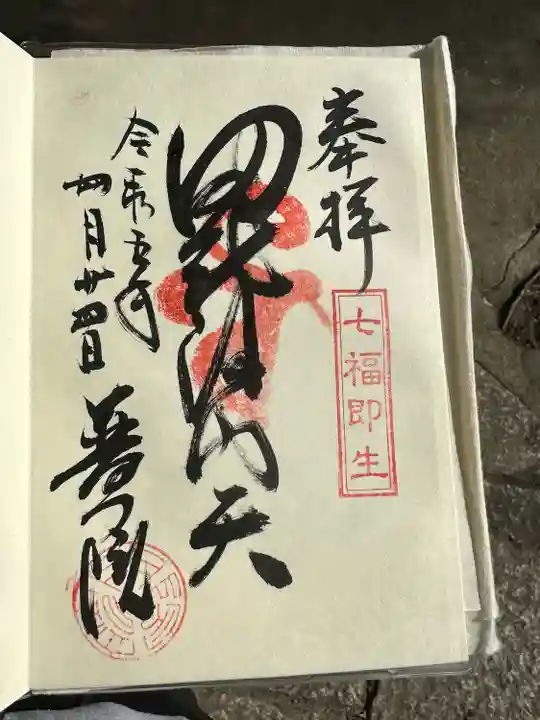 奉拝
七福即生
毘沙門天
令和五年
四月廿四日
普門院